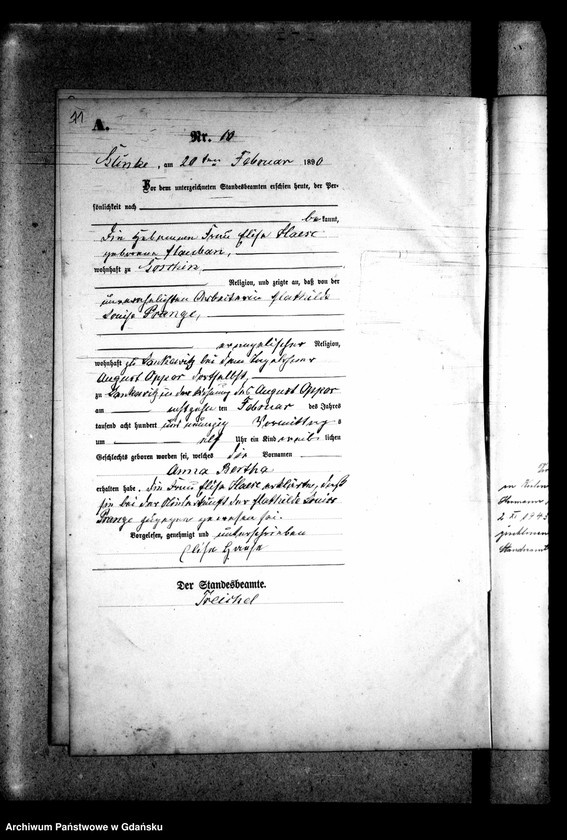 11
A.
Nr. 10
Glinke, am 20 ten Februar 1890
Vor dem unterzeichneten Standesbeamten erschien heute, der Per-
sönlichkeit nach
bekannt,
die Hebamme Frau Elise Haase
geborene
wohnhaft zu
Religion, und zeigte an, daß von der
unverehelichten Arbeiterin Mathilde
Louise Prange,
evangelischer Religion,
wohnhaft zu Jankewitz bei dem
August Oppor dortselbst,
zu Jankewitz in der Wohnung des August Oppor
am achtzehn ten Februar des Jahres
tausend acht hundert und neunzig Vormittag s
um elf Uhr ein Kind weib lichen
Geschlechts geboren worden sei, welches die Vornamen
Anna Bertha
erhalten habe. Die Frau Elise Haase erklärte, daß
sie bei der Niederkunft der Mathilde Louise
Prange zugegen gewesen sei.
Vorgelesen, genehmigt und unterschrieben
Elise Haase
Der Standesbeamte.
Treichel
2 XI 1943
Standesamt
Archiwum Państwowe w Gdańsku